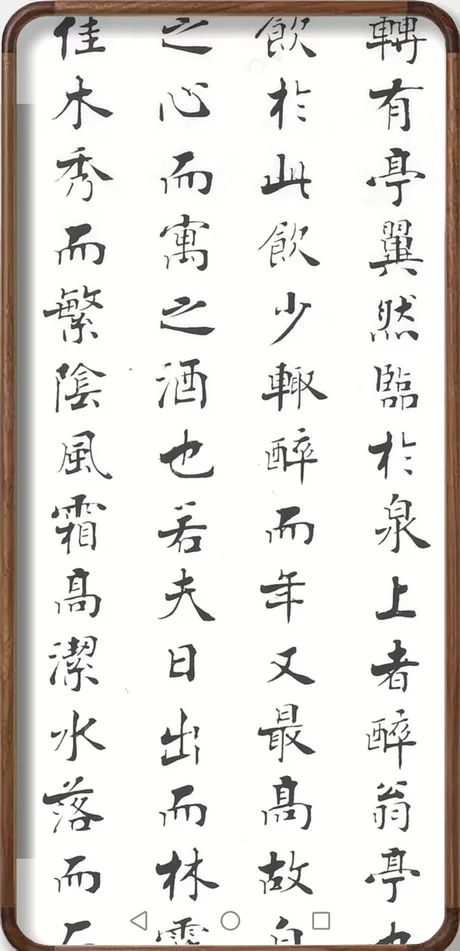 轉有亭翼然臨於泉上者醉翁亭也
飲於此飲少輙醉而年又最髙故自
之心而寓之酒也若夫日出而林霏
佳木秀而繁陰風霜髙潔水落而石